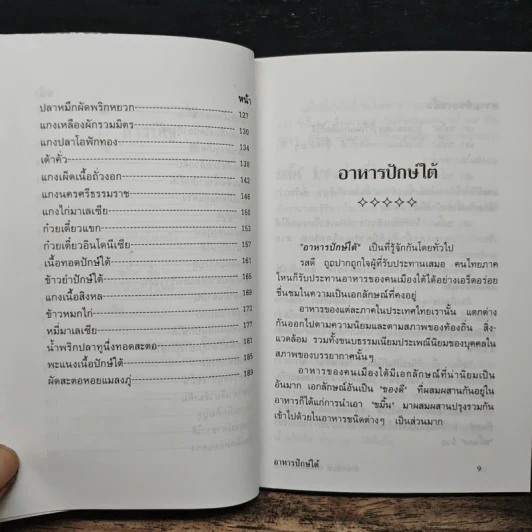 หน้า
ปลาหมึกผัดพริกหยวก 127
แกงเหลืองผักรวมมิตร 130
แกงปลาโอฟักทอง 134
เต้าคั่ว 138
แกงเผ็ดเนื้อถั่วงอก 142
แกงนครศรีธรรมราช 146
แกงไก่มาเลเซีย 151
ก๋วยเตี๋ยวแขก 153
ก๋วยเตี๋ยวอินโดนีเซีย 157
เนื้อทอดปักษ์ใต้ 161
ข้าวยำปักษ์ใต้ 165
แกงเนื้อสิงหล 169
ข้าวหมกไก่ 173
หมี่มาเลเซีย 177
น้ำพริกปลาทูนึ่งทอดสะตอ 181
พะแนงเนื้อปักษ์ใต้ 185
ผัดสะตอหอยแมลงภู่ 189
อาหารปักษ์ใต้
"อาหารปักษ์ใต้" เป็นที่รู้จักกันโดยทั่วไป
รสดี ถูกปากถูกใจผู้ที่รับประทานเสมอ คนไทยภาค
ไหนก็รับประทานอาหารของคนเมืองใต้ได้อย่างเอร็ดอร่อย
ชื่นชมในความเป็นเอกลักษณ์ที่คงอยู่
อาหารของแต่ละภาคในประเทศไทยเรานั้น แตกต่าง
กันออกไปตามความนิยมและตามสภาพของท้องถิ่น สิ่ง
แวดล้อม รวมทั้งขนบธรรมเนียมประเพณีนิยมของบุคคลใน
สภาพของบรรยากาศนั้นๆ
อาหารของคนเมืองใต้มีเอกลักษณ์ที่น่านิยมเป็น
อันมาก เอกลักษณ์อันเป็น "ของดี" ที่ผสมผสานกันอยู่ใน
อาหารก็ได้แก่การนำเอา "ขมิ้น" มาผสมผสานปรุงรวมกัน
เข้าไปด้วยในอาหารชนิดต่างๆ เป็นส่วนมาก
อาหารปักษ์ใต้ 9